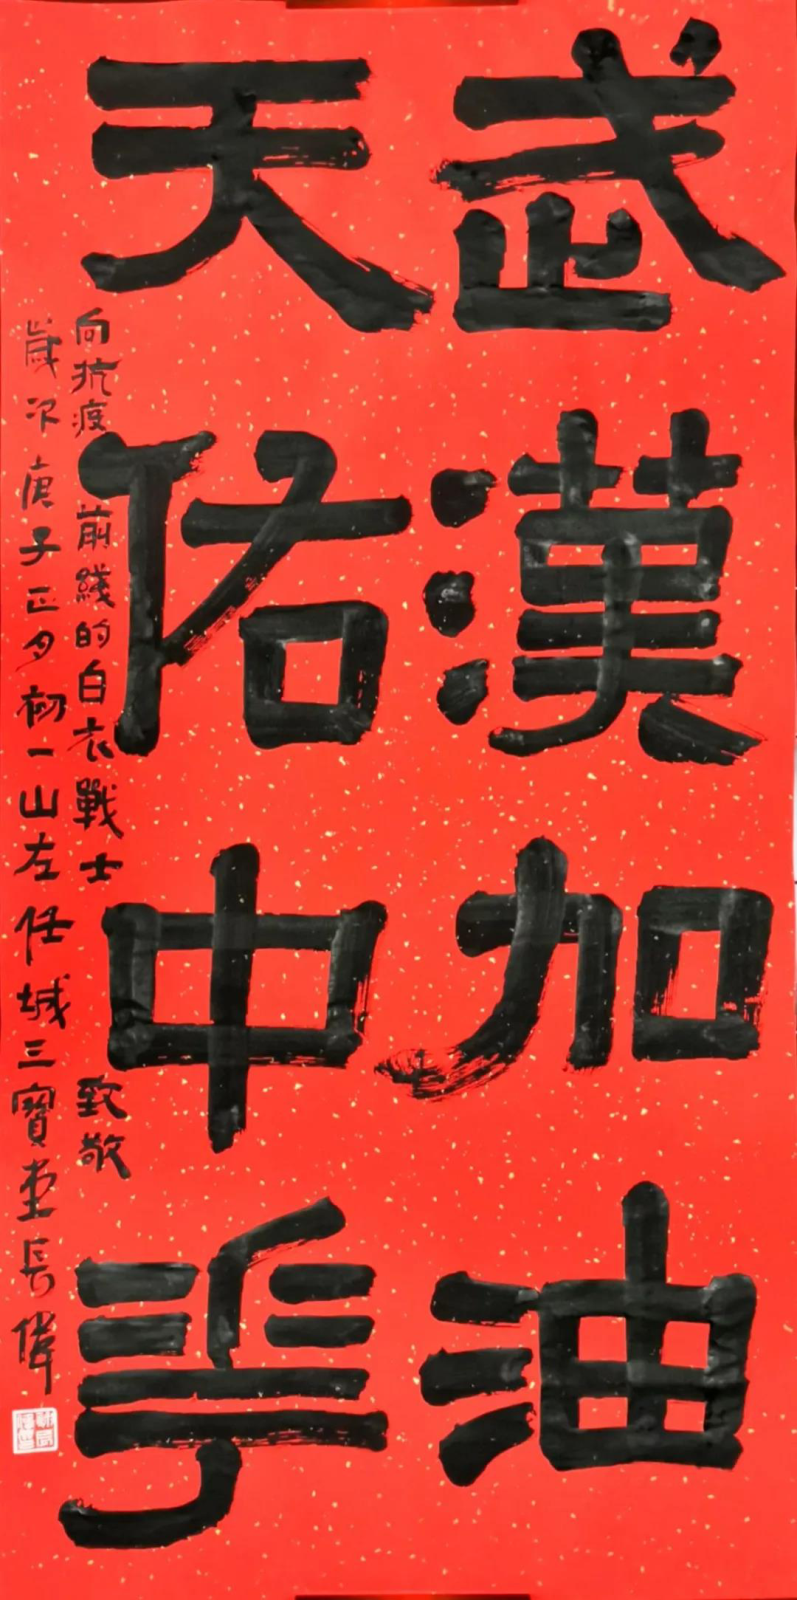 武漢加油
天佑中華
向抗疫前綫的白衣戰士致敬
歲次庚子正月初一山左任城三寶堂長偉